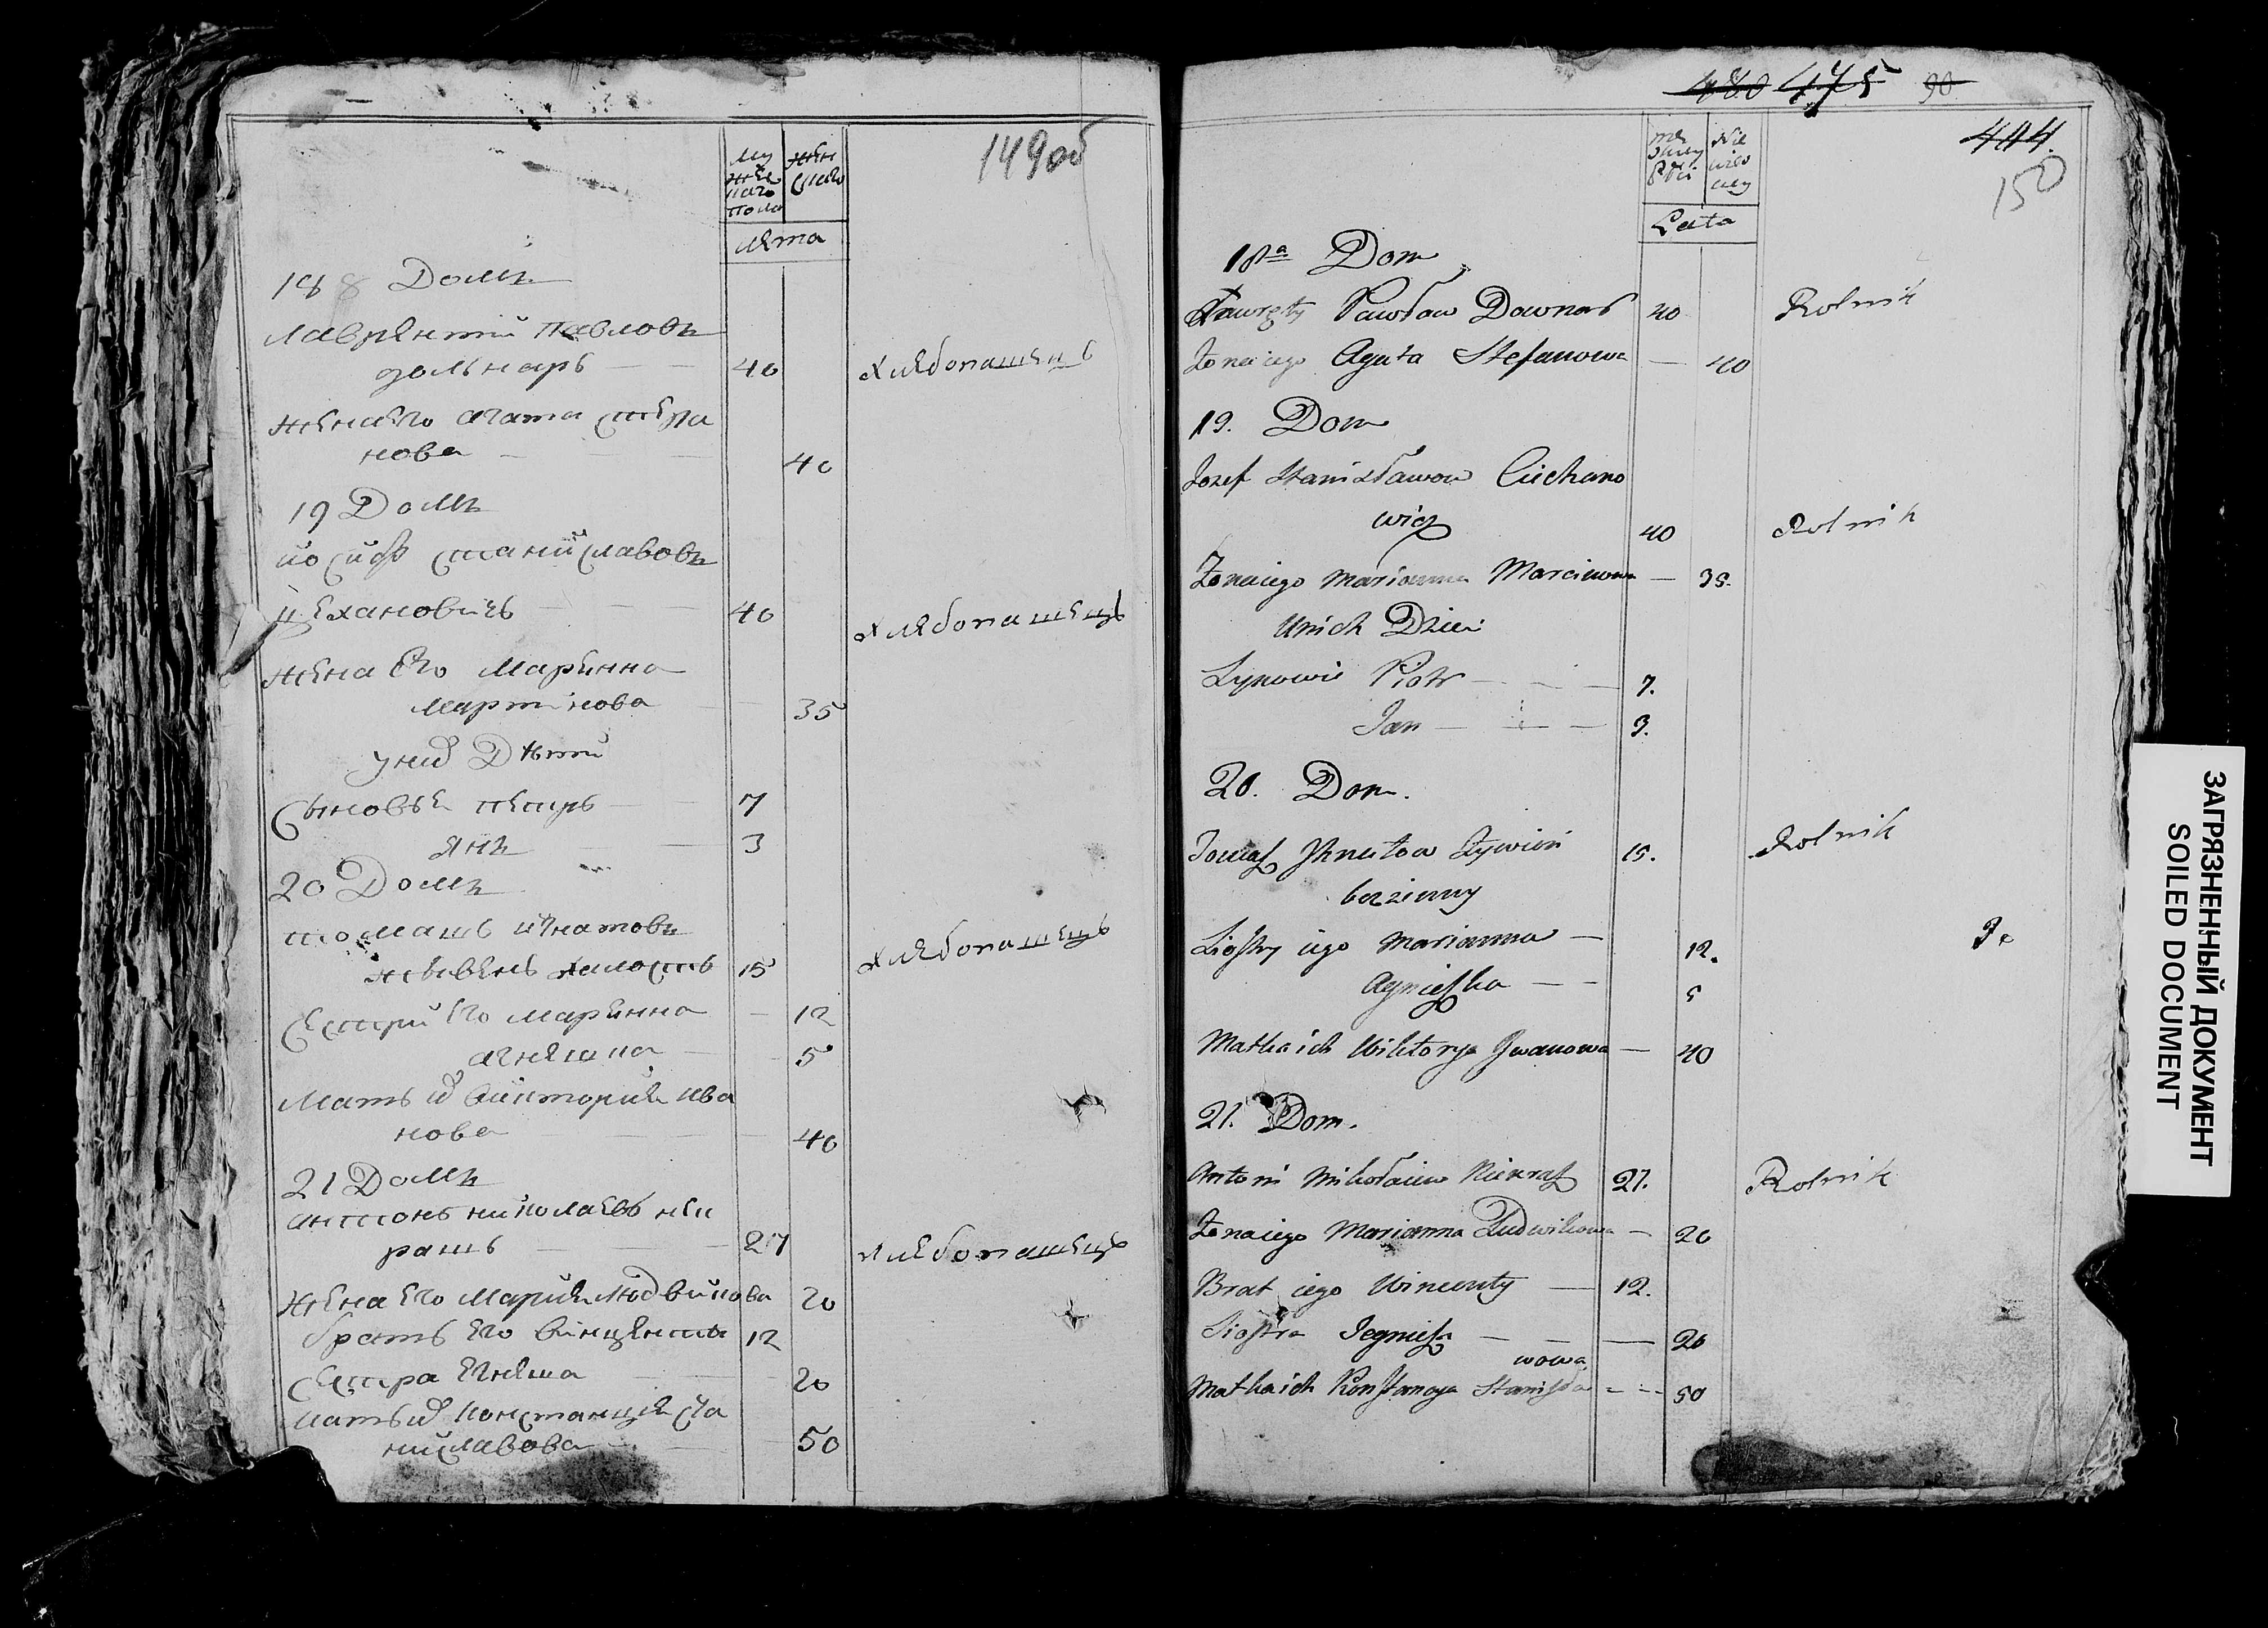 149об
му
жес
каго
пола
жен
скаго
лета
18 Домъ
Лаврентий Павловъ
40
хлебопашець
жена его Агата Стефа
нова
40
19 Домъ
Иосифъ Станиславовъ
Цехановичь
40
хлебопашецъ
жена его Марианна
Мартинова
35
у них Дѣти
Сыновья Петръ
7
Янъ
3
20 Домъ
Томашъ Игнатовъ
15
хлебопашецъ
Сестры его Марианна
12
Агнешка
5
Мать их Виктория Ива
нова
40
21 Домъ
Антонъ Николаевъ Нек
рашъ
27
хлебопашецъ
жена его Мария Людвикова
20
братъ его Винцентъ
12
Сестра Егнеша
20
мать их Констанция Ста
ниславова
50
480 475 90
444.
150
Lata
18a Dom
Pawłow Downar
40
Rolnik
Zona iego Agata Stefanowa
40
19. Dom
Jozef Stanisławow Ciechano
wicz
40
Rolnik
Zona iego Marianna Marcinowa
35.
U nich Dzieci
Synowie Piotr
7.
Jan
3.
20. Dom.
Tomasz Ihnatow Zywień
15.
Rolnik
bezzenny
Siostry iego Marianna
12.
Agnieszka
5
Matka ich Wiktorya Iwanowa
40
21. Dom.
Antoni Mikołaiew Niekrasz
27.
Rolnik
Zona iego Marianna Ludwikowa
20
Brat iego Wincenty
12.
Siostra Jegniesza
20
wowa
Matka ich Konstancya Stanisła
50
ЗАГРЯЗНЕННЫЙ ДОКУМЕНТ
SOILED DOCUMENT